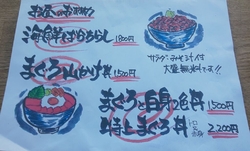 お昼のおすすめ
海鮮ばらちらし 1,800円
サラダ・みそ汁付
大盛無料です!!
まぐろ山かけ丼 1,500円
まぐろと白身2色丼 1,500円
特上まぐろ丼 2,200円